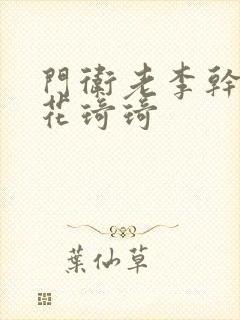 門衛老李幹
花琦琦
葉仙草